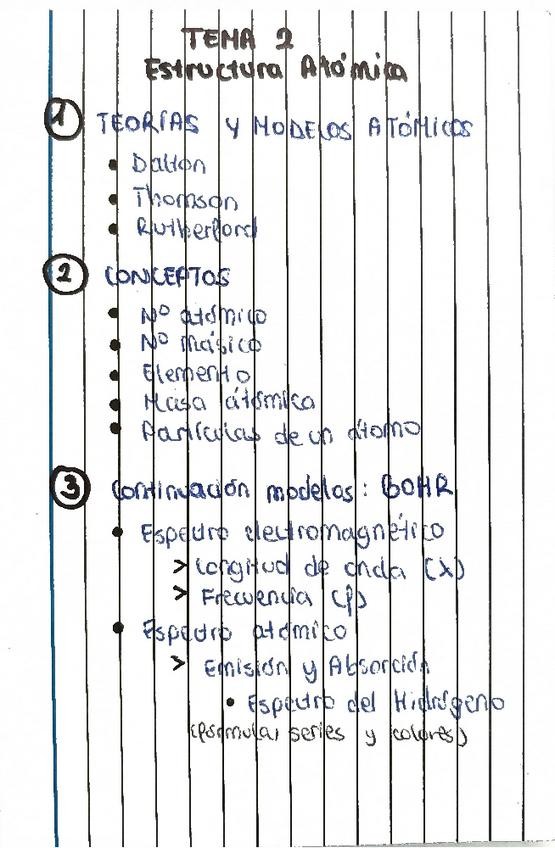 TEMA 2
Estructura Atómica
1 TEORÍAS Y MODELOS ATÓMICOS
• Dalton
• Thomson
• Rutherford
2 CONCEPTOS
• Nº atómico
• Nº másico
• Elemento
• Masa átómica
• Partículas de un átomo
3 Continuación modelos: BOHR
• Espectro electromagnético
> Longitud de onda (λ)
> Frecuencia (f)
• Espectro atómico
> Emisión y Absorción
• Espectro del Hidrógeno
(fórmula, series y colores)